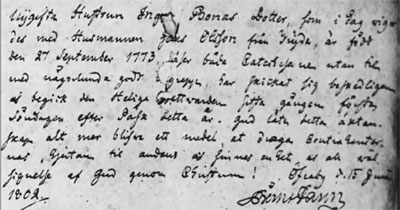 Dygesta Hustrun Inger Jonas Dotter, som i dag vigs
des med Husmannen Jöns Olsson från Fryde, är född
den 27 September 1773 läser båda Catecheserne utan til
med någorlunda godt begrepp, har skickat sig beskedligen
och begick den Heliga Nattvarden sista gången första
Söndagen efter Påsk detta år. Gud låte detta äkten-
skap alt mer blifva ett medel at draga Contrahenter-
nas hjertan til andans och sinnets enhet, och all väl
signelse af Gud genom Christum! d. 15 Juni
1802.